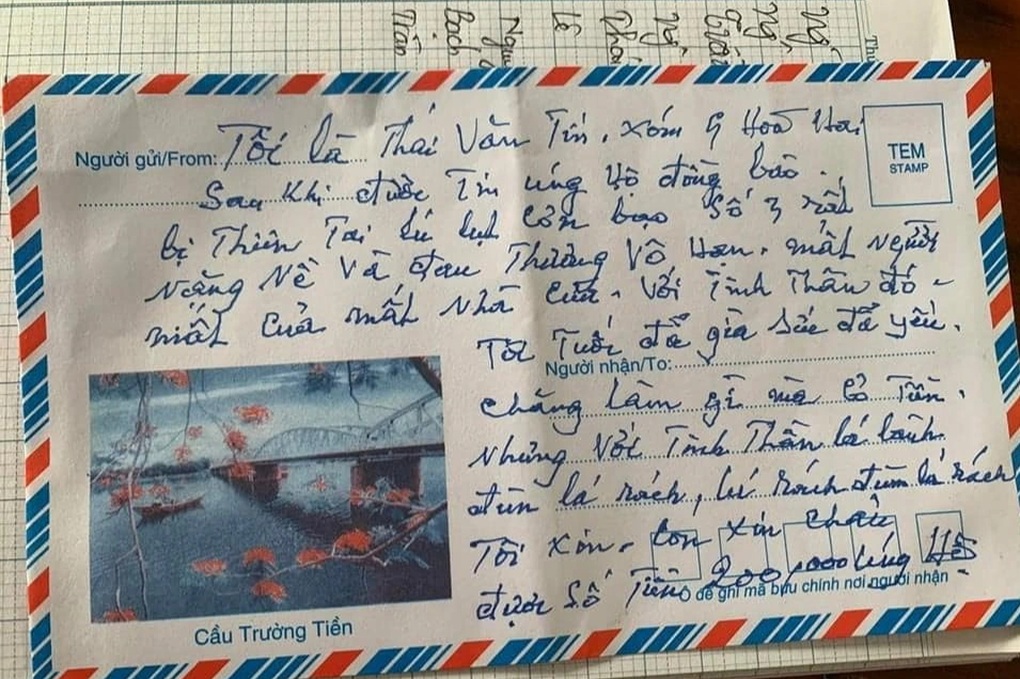 Thư
Ng
Ng
Trần
Ng
Thá
Lê
Ngu
Bạch
Trần
Người gửi/From: Tôi là Thái Văn Tín. xóm 9 Hoà Hải
TEM
STAMP
Sau khi được Tin ủng hộ đồng bào.
bị Thiên Tai lủ lụt cơn bạo số 3 rất
Nặng Nề Và đau Thương Vô Hạn. mất Người
mất Của mất Nhà Cửa. Với Tinh Thần đó -
Tôi Tuổi đã già sức đã yếu.
Người nhận/To:
chẳng làm gì mà Có Tiền.
Nhưng Với Tinh Thần lá lành
đùm lá rách, lá rách đùm lá rách
Tôi xin. Con xin cháu
được Số Tiền 200,000 ủng Hộ
Ô để ghi mã bưu chính nơi người nhận
Cầu Trường Tiền